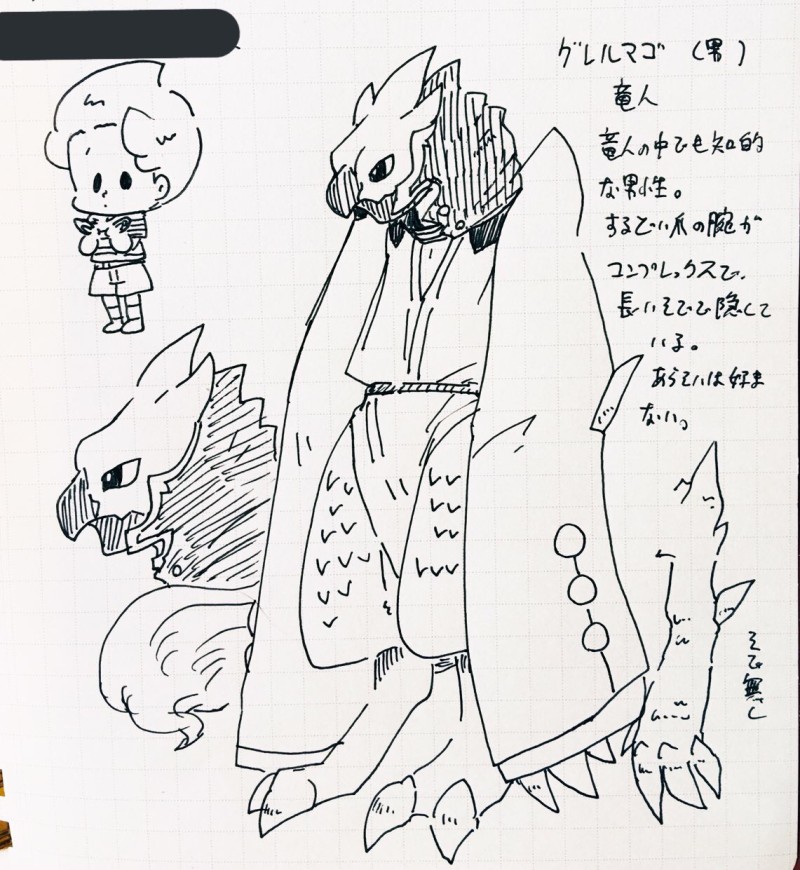 グレルマゴ (男)
竜人
竜人の中でも知的
な男性。
するどい爪の腕が
コンプレックスで、
長いそでで隠して
いる。
あらそいは好ま
ない。
そで無し